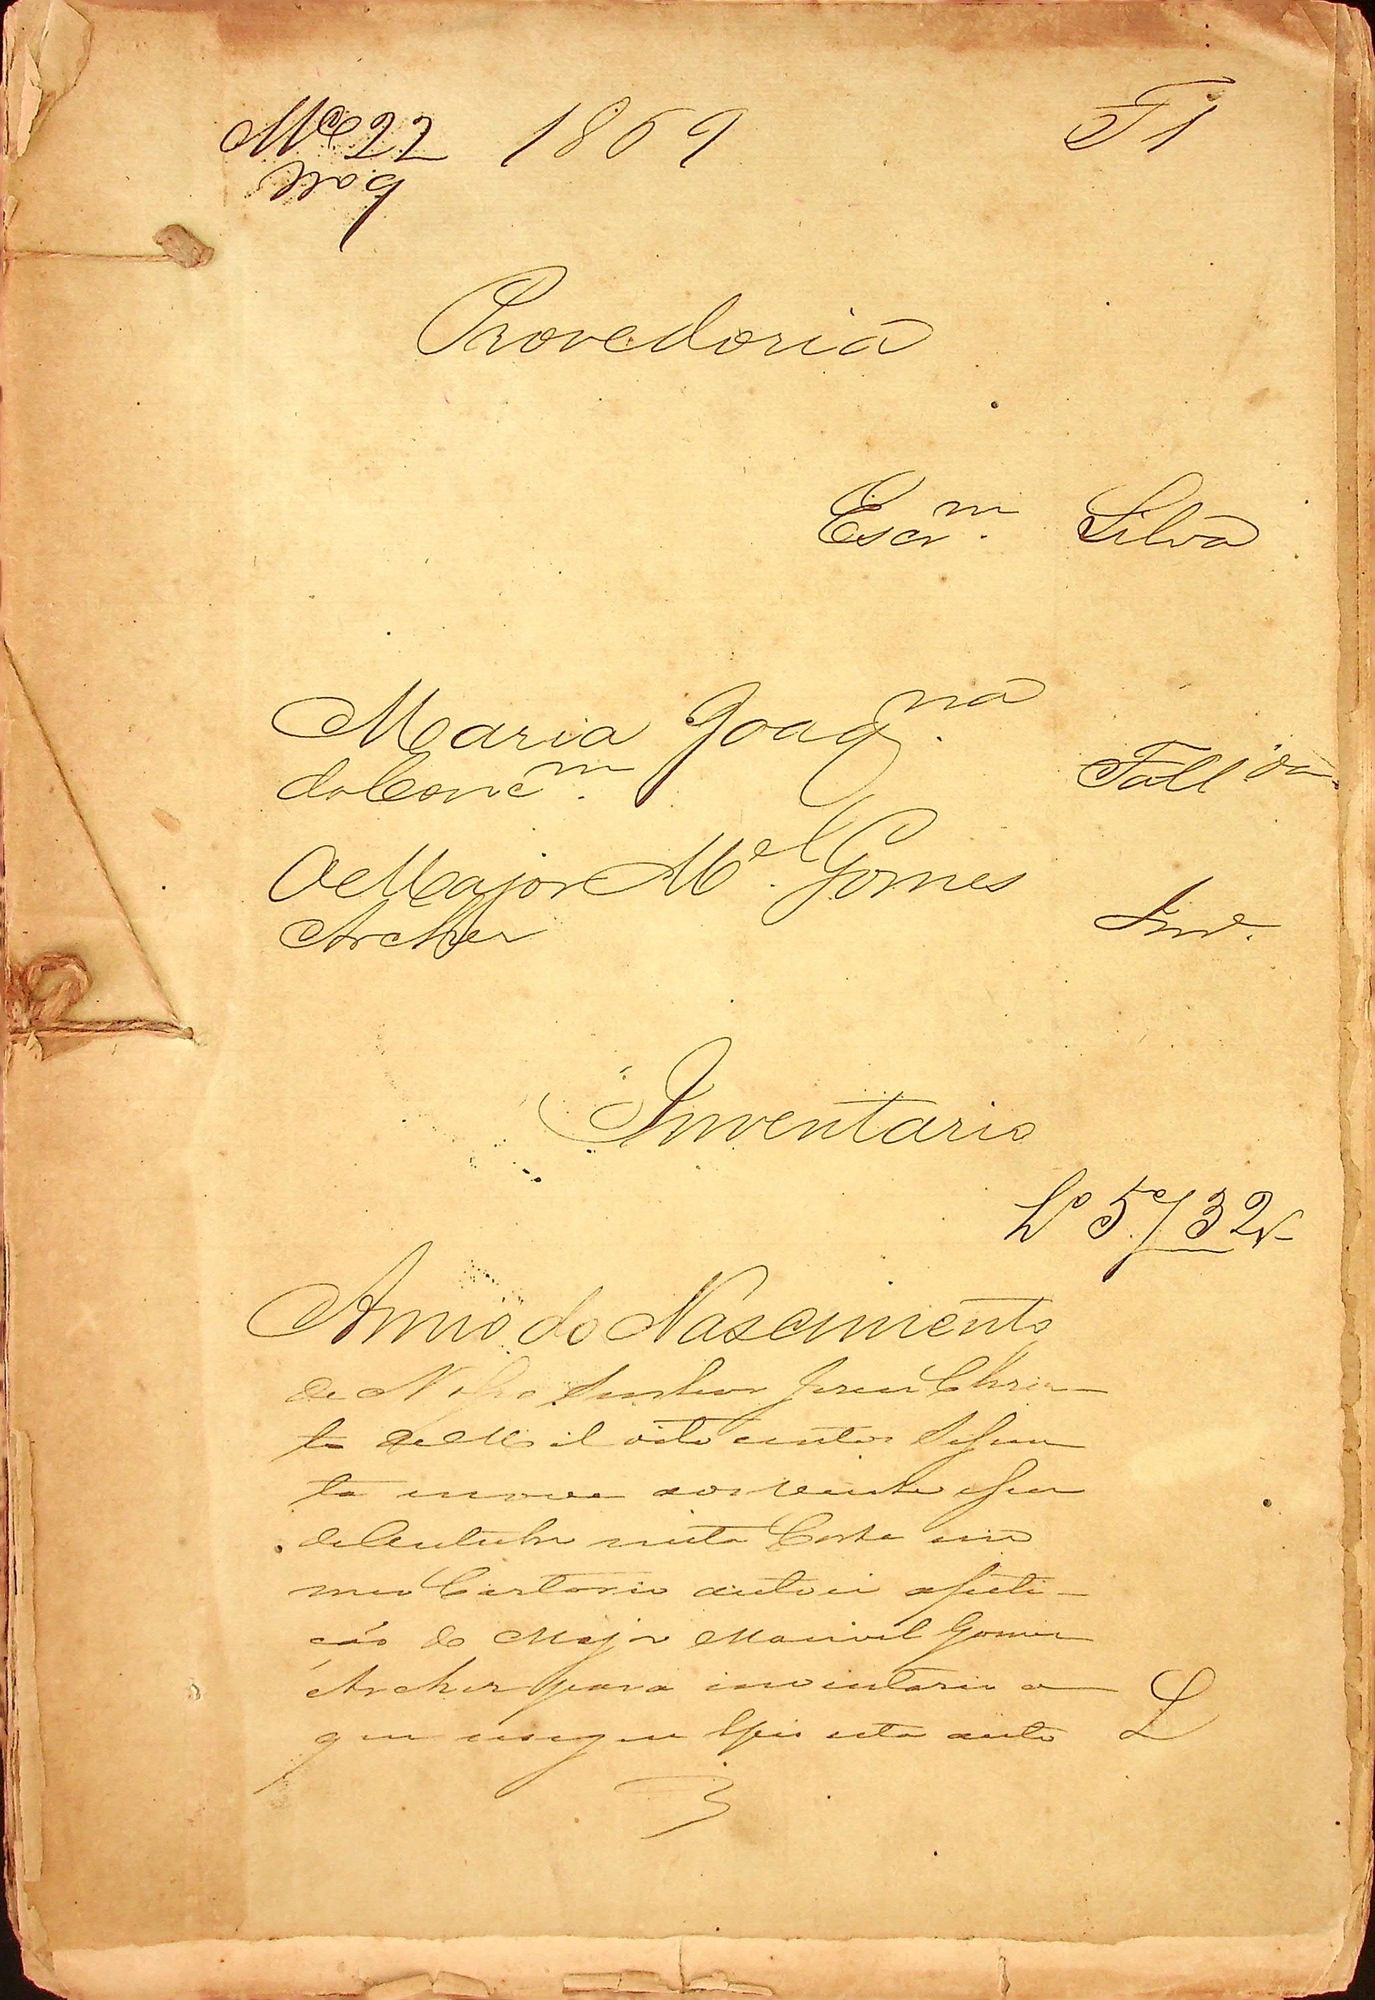 Mç 22 1869 F 1
Nº 9
Provedoria
Escr.m Silva
Maria Joaq.na
da Conc.m Fall.da
O Major M.el Gomes
Archer Inv.e
Inventario
Lº 5º f 32 v
Anno do Nascimento
de Nosso Senhor Jesus Chris-
to de Mil oito centos Sessen
ta e nove aos vinte e seis
de Outubro nesta Corte em
meu Cartorio autoei a peti-
ção do Major Manoel Gomes
Archer para inventario a
que segue e fiz esta auto L